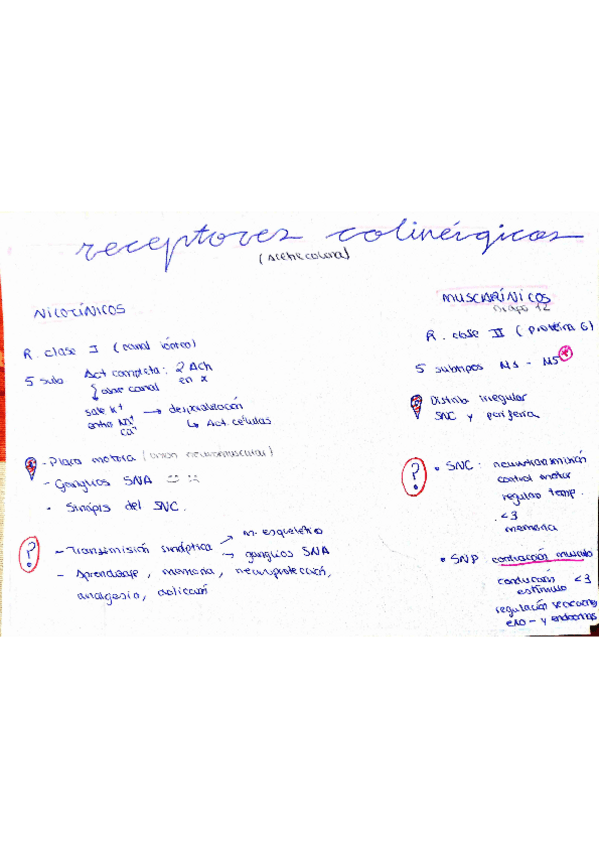 receptores colinérgicos
(acetilcolina)
NICOTÍNICOS
R. clase I (canal iónico)
5 sub
Act completa: 2 Ach
abre canal en x
sale K+ → despolarización
entra Na+
Ca2+
↳ Act. células
- Placa motora (unión neuromuscular)
- Ganglios SNA
• Sinápsis del SNC.
?
- Transmisión sináptica → m. esquelético
→ ganglios SNA
- Aprendizaje, memoria, neuroprotección,
analgesia, adicción
MUSCARÍNICOS
Grupo 12
R. clase II (proteína G)
5 subtipos M1 - M5 *
Distrib irregular
SNC y periferia
?
• SNC: neurotransmisión
control motor
regulac temp.
<3
memoria
• SNP contracción músculo
conducción <3
estímulo
regulación secreciones
exo- y endocrinas